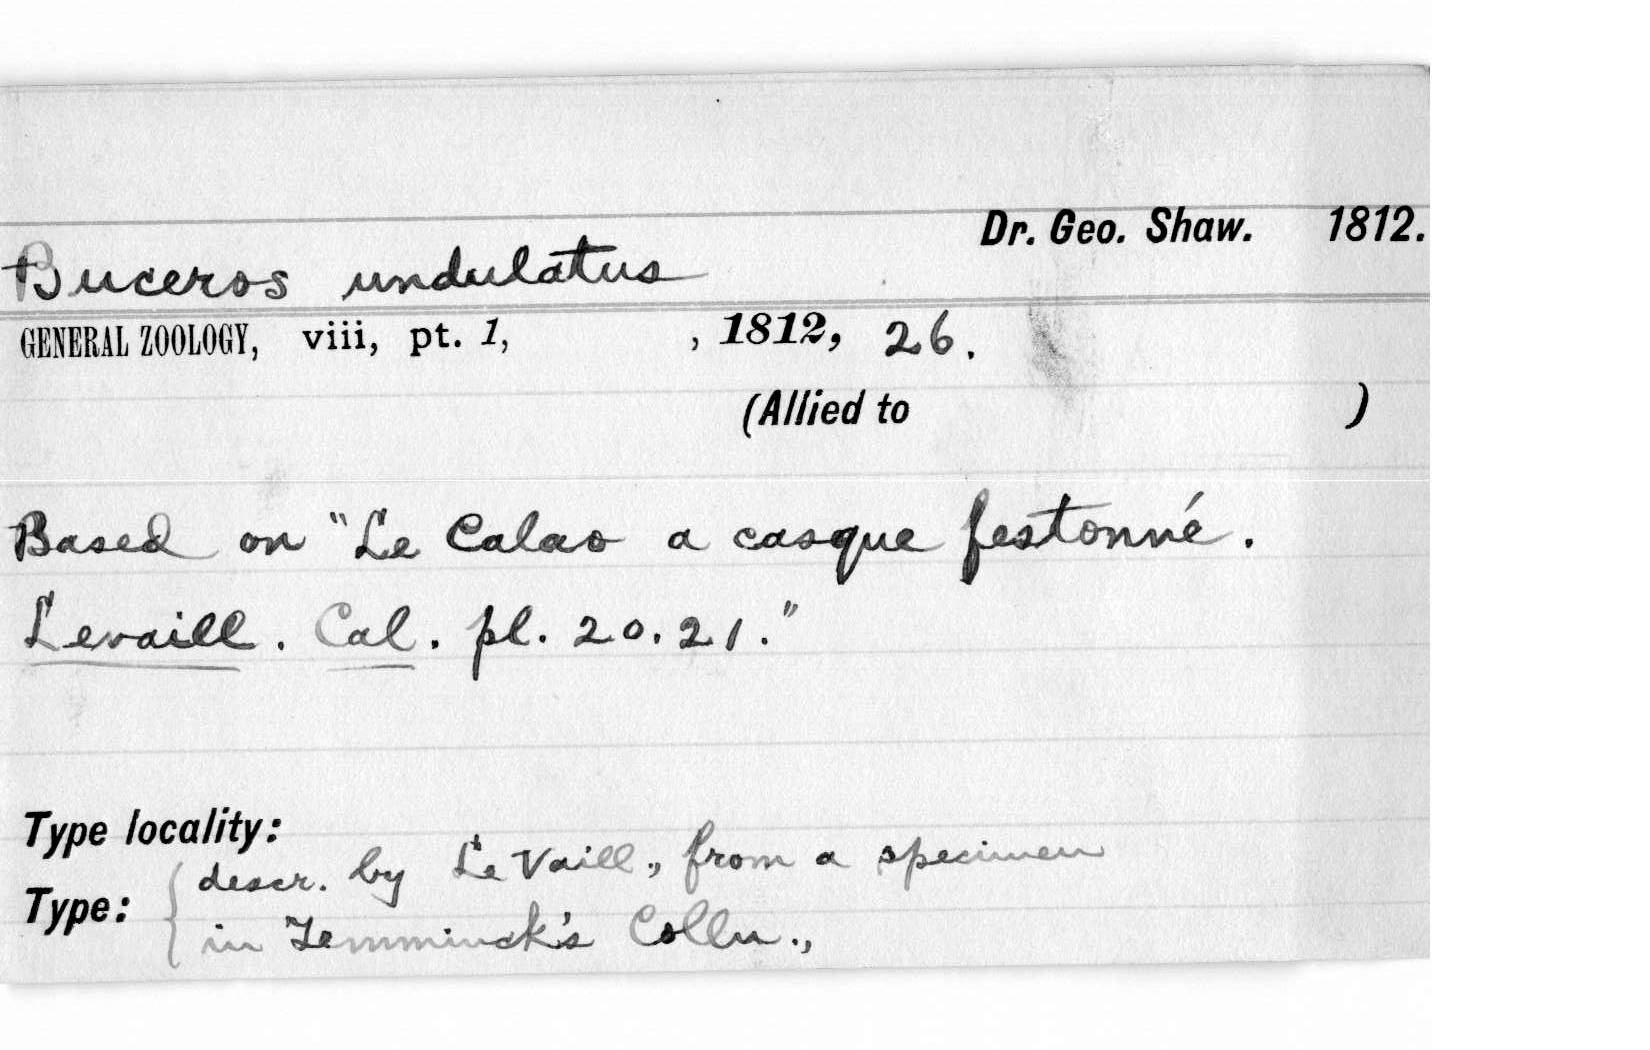 Dr. Geo. Shaw. 1812.
Buceros undulatus
GENERAL ZOOLOGY, viii, pt. 1, , 1812, 26.
(Allied to )
Based on "Le Calao a casque festonné.
Levaill. Cal. pl. 20. 21."
Type locality:
descr. by Le Vaill., from a specimen
Type:
in Temminck's Colln.,